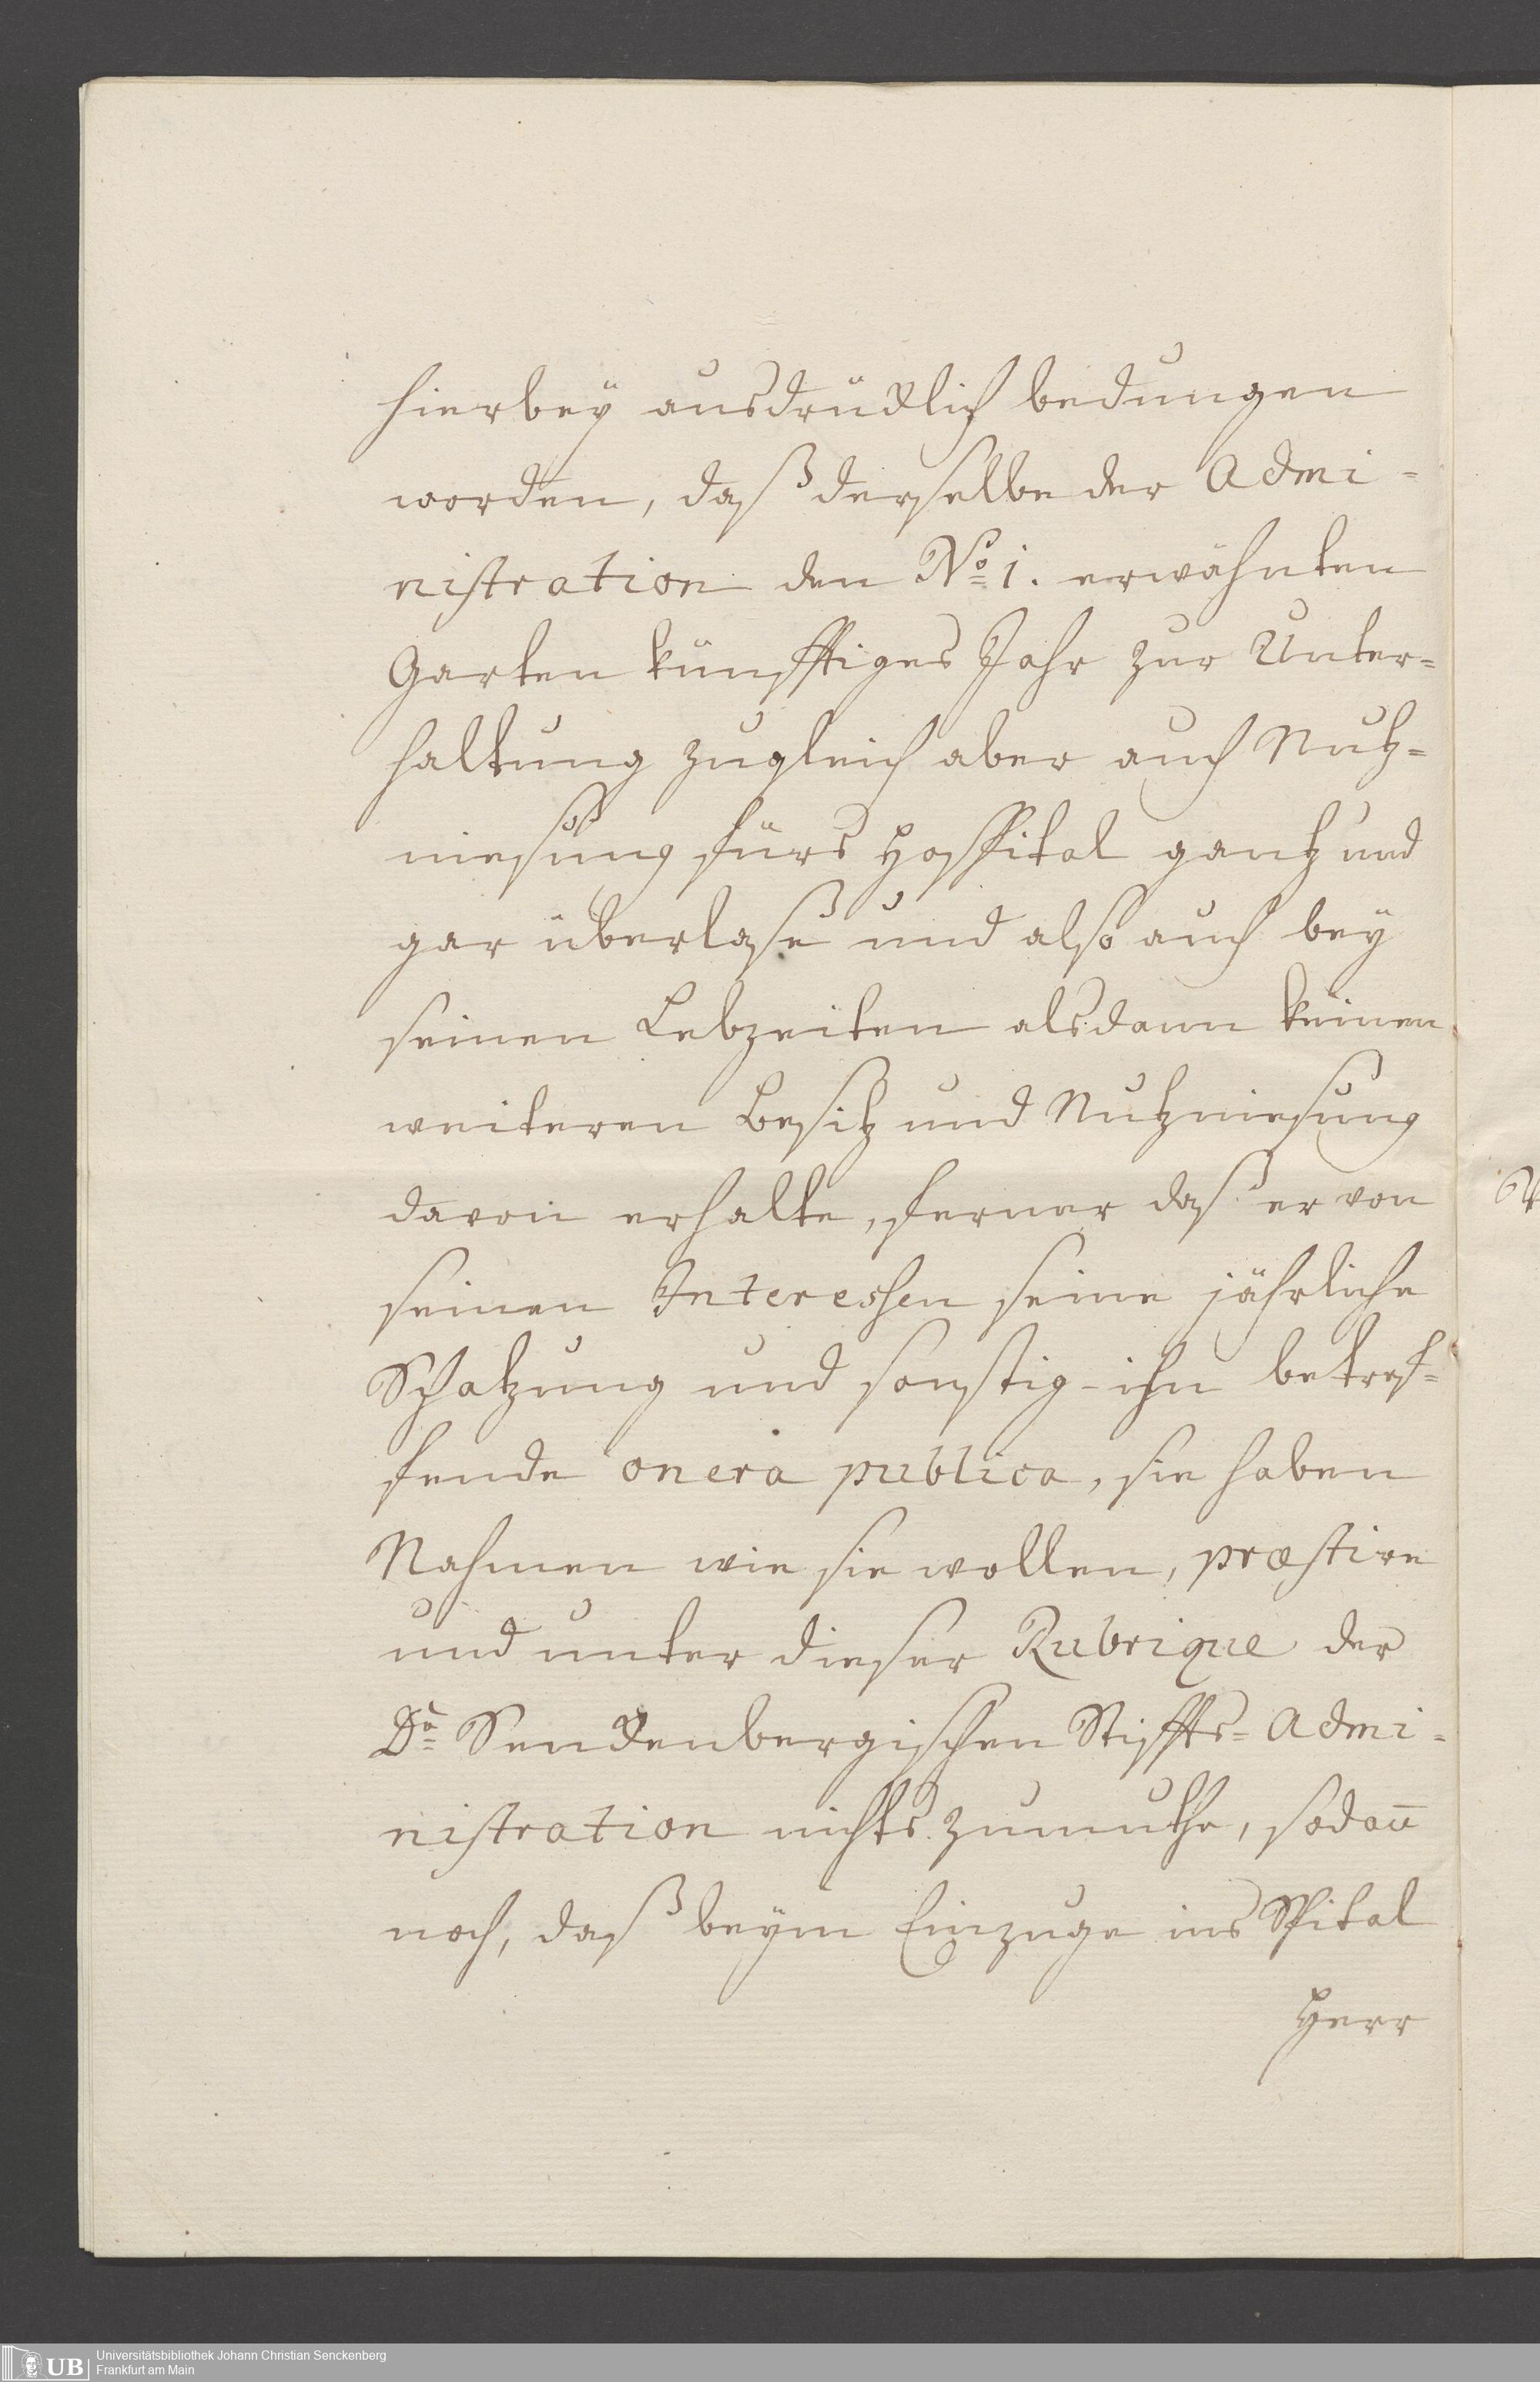 hierbey ausdrücklich bedungen
worden, daß derselbe der Admi=
nistration den No. 1. erwähnten
Garten künfftiges Jahr zur Unter=
haltung zugleich aber auch Nutz=
niesung fürs Hospital gantz und
gar überlaße und also auch bey
seinen Lebzeiten alsdann keinen
weiteren Besitz und Nutzniesung
davon erhalte, ferner daß er von
seinen Interessen seine jährliche
Schatzung und sonstig-ihn betref=
fende onera publica, sie haben
Nahmen wie sie wollen, præstire
und unter dieser Rubrique der
Dr. Senckenbergischen Stiffts=Admi=
nistration nichts zumuthe, sodan̄
noch, daß beym Einzuge ins Spital
Herr
UB
Universitätsbibliothek Johann Christian Senckenberg
Frankfurt am Main